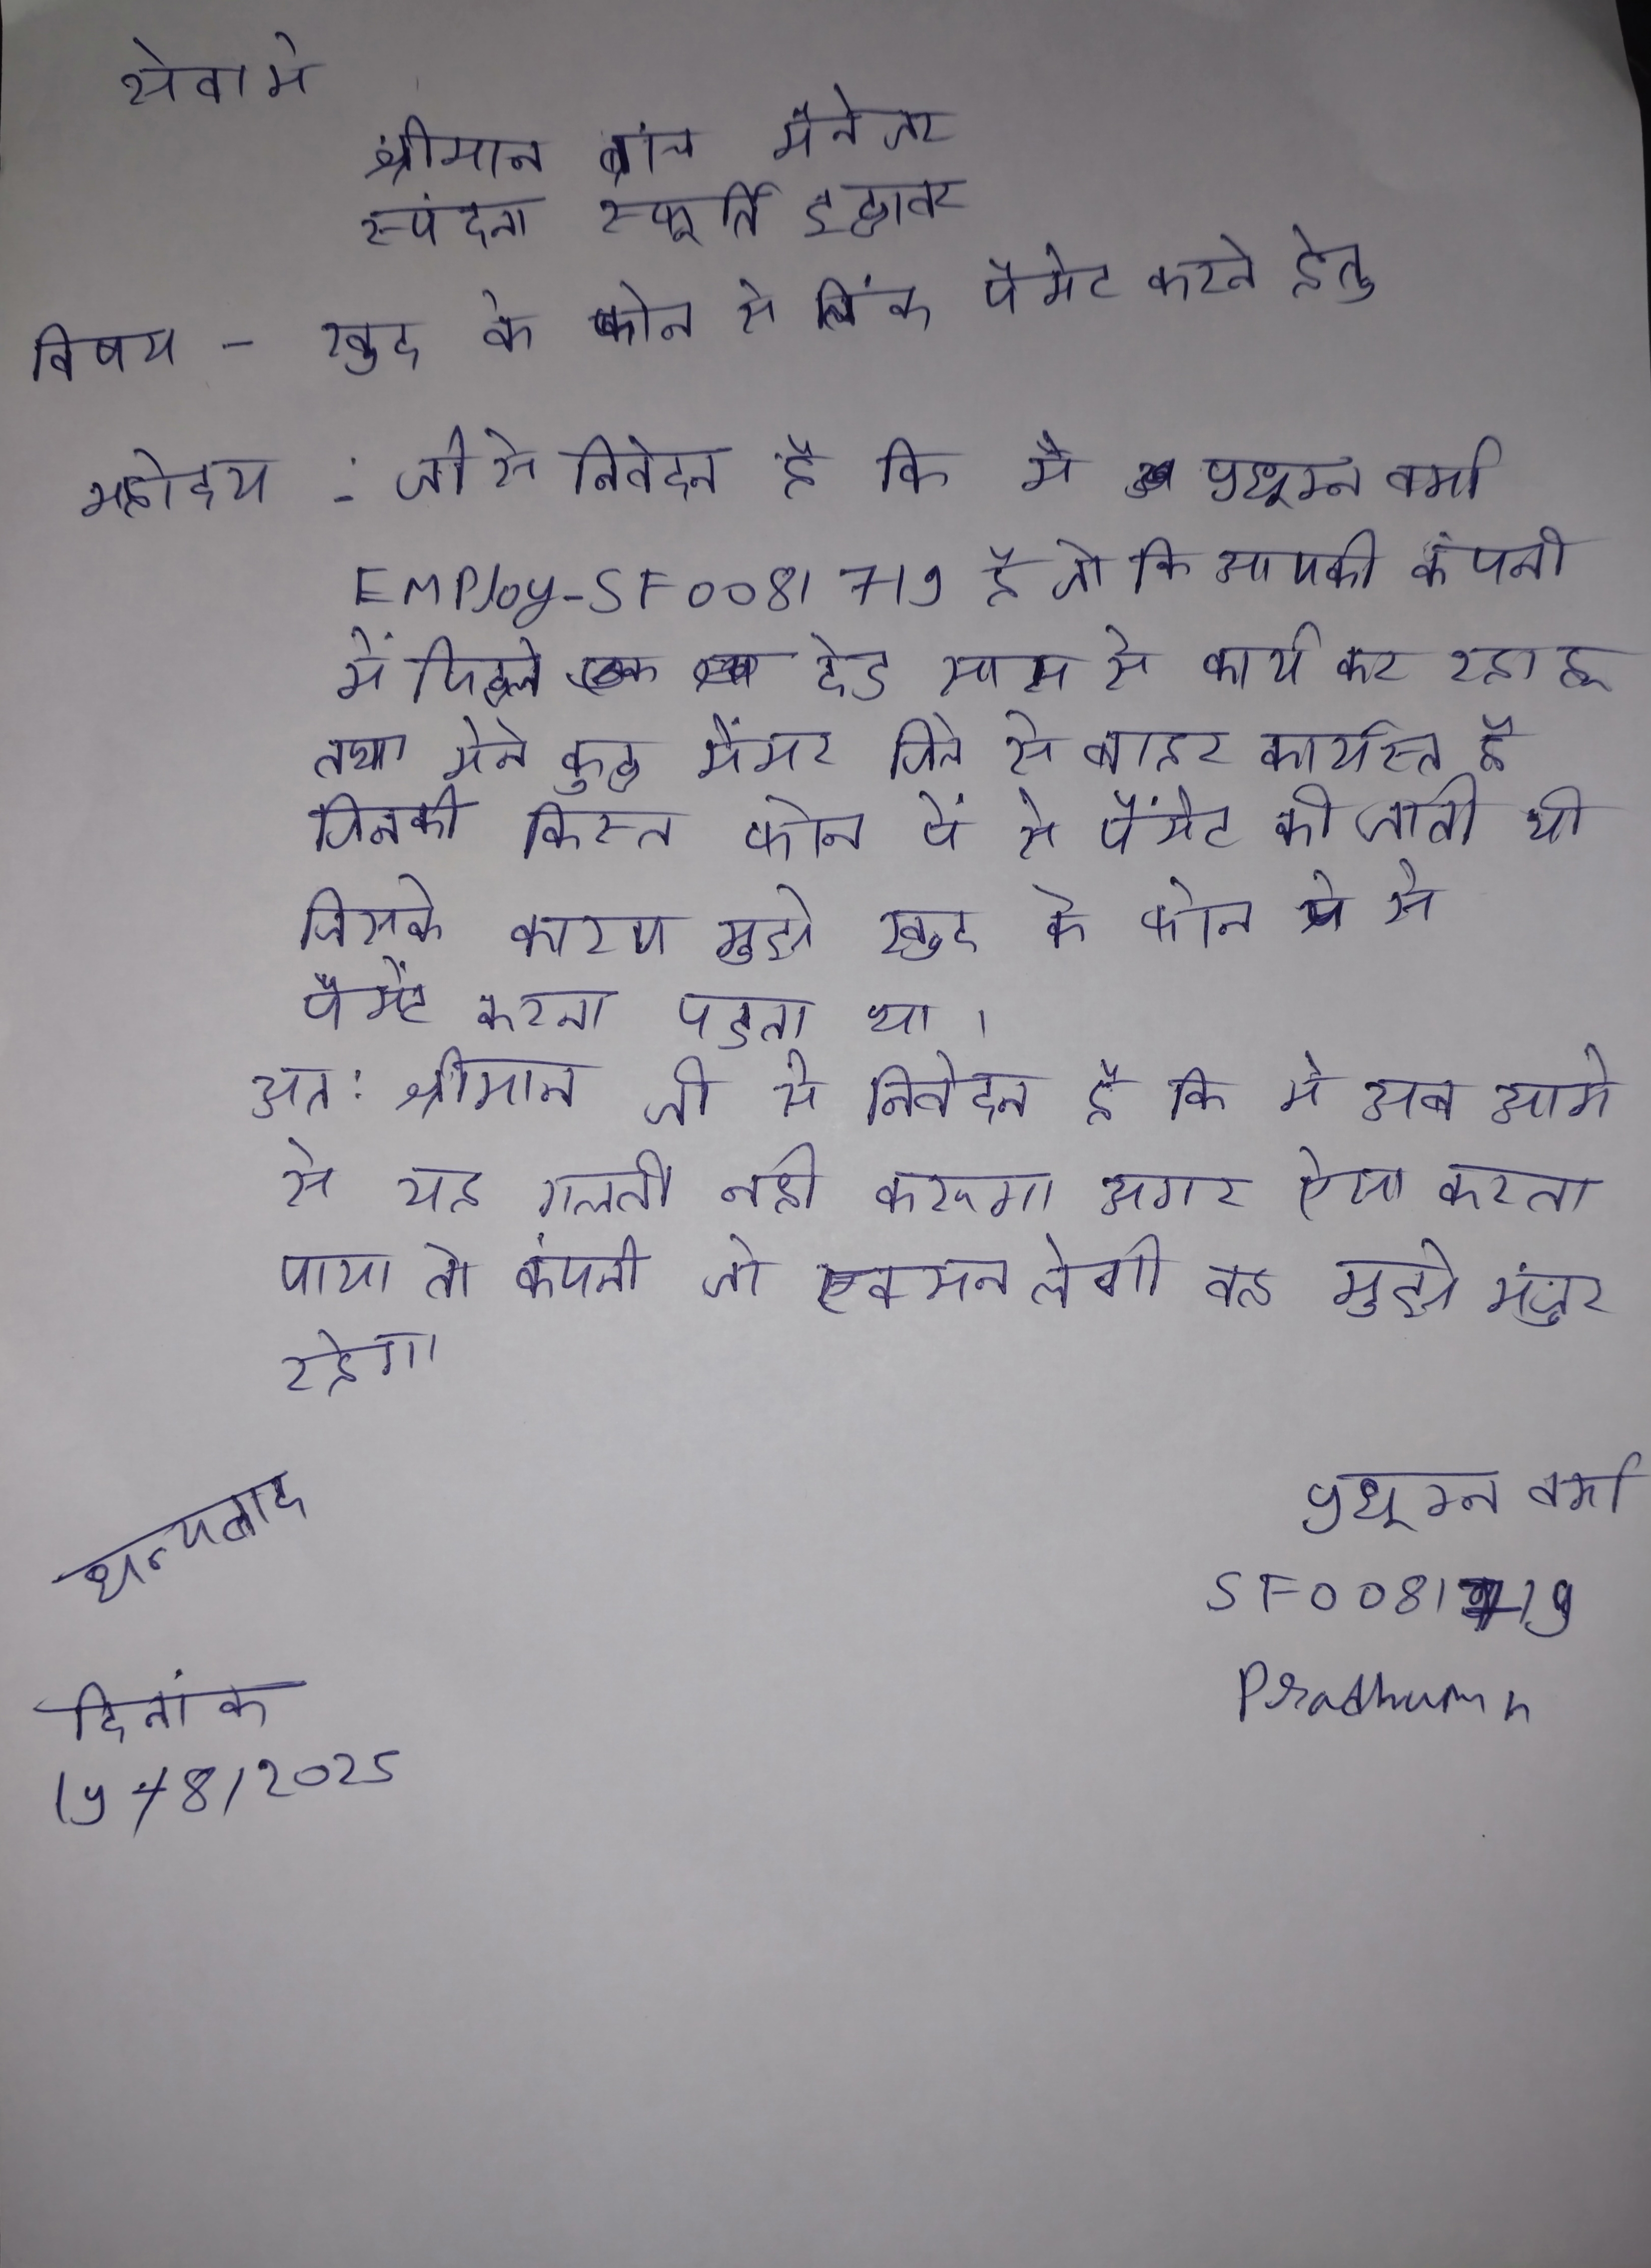 सेवा मे
श्रीमान ब्रांच मैनेजर
स्पंदना स्फूर्ति इछावर
विषय - खुद के फोन से लिंक पैमेट करने हेतु
महोदय :- जी से निवेदन है कि मै प्रधूम्न वर्मा
EMPloy-SF0081719 है जो कि आपकी कंपनी
में पिछले देड साल से कार्य कर रहा हू
तथा मेने कुछ मेंमर जिले से बाहर कार्यरत है
जिनकी किस्त फोन पें से पैंमेट की जाती थी
जिसके कारण मुझे खुद के फोन पे से
पैमेंट करना पडता था ।
अत: श्रीमान जी से निवेदन है कि मे अब आगे
से यह गलती नही करूगा अगर ऐसा करता
पाया तो कंपनी जो एक्सन लेगी वह मुझे मंजुर
रहेगा
धन्यबाद
प्रधूम्न वर्मा
SF0081719
Pradhumn
दिनांक
19/8/2025